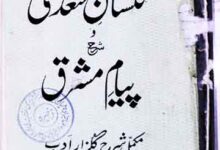 گلستان سعدی
و
شرح
پیام مشرق
مکمل شرح گلزار ادب